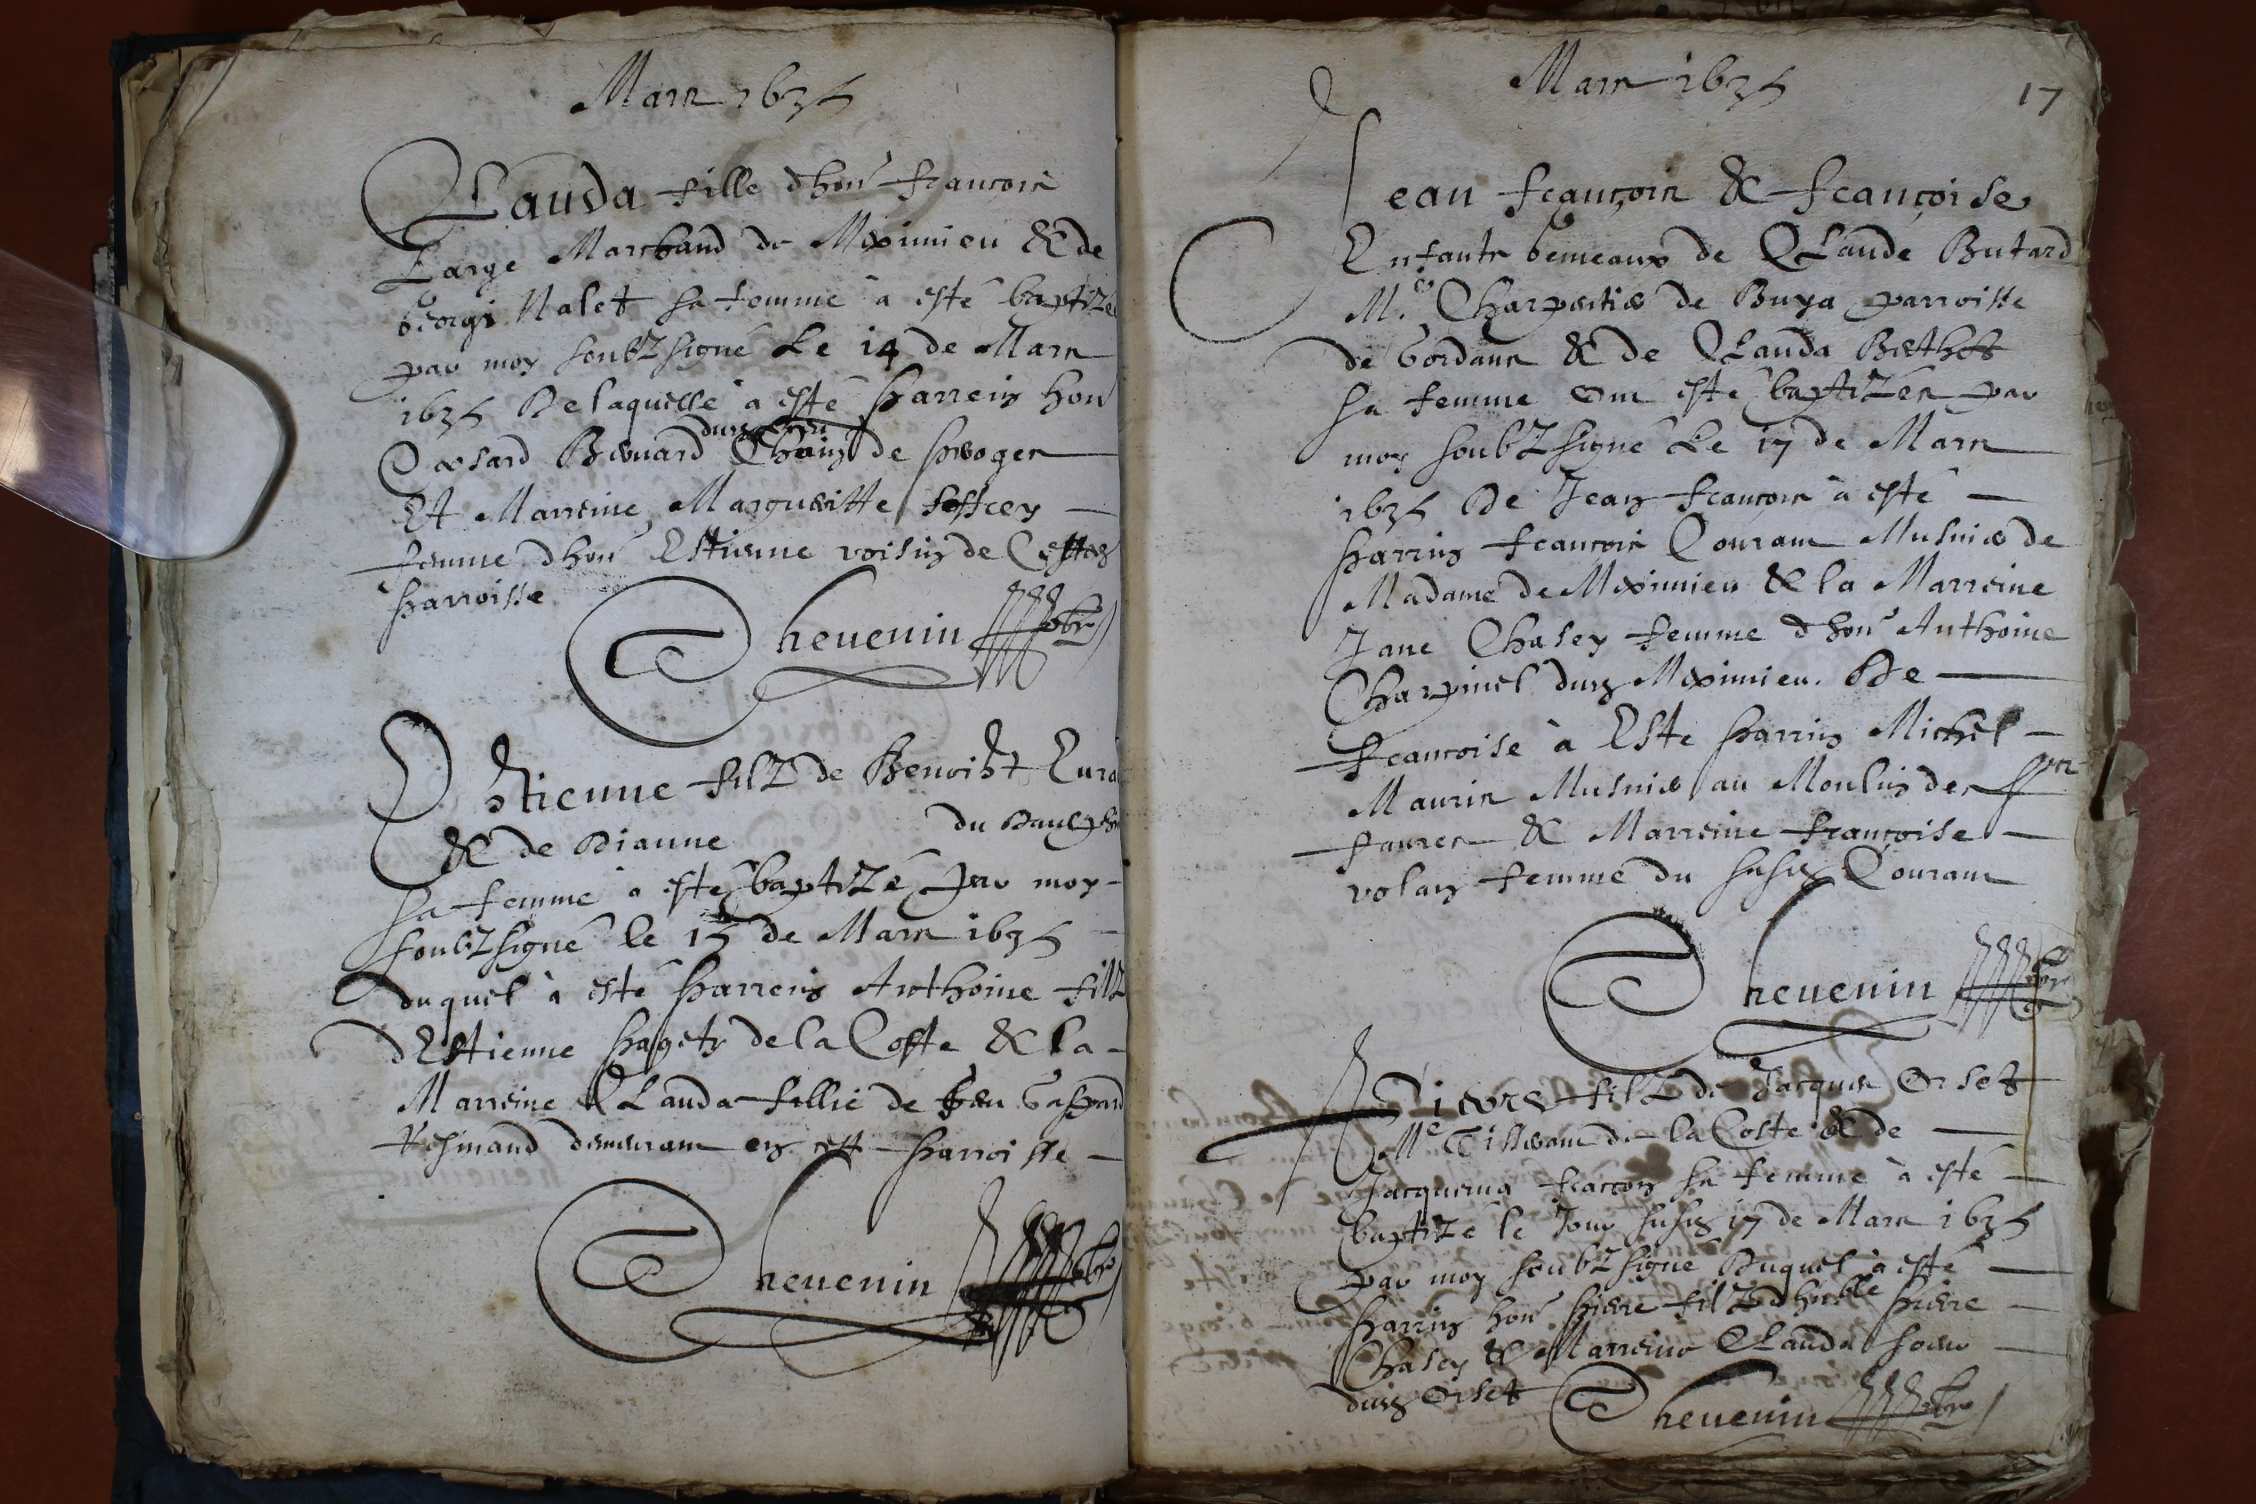 Mars 1635
Clauda fille d'hon françois
Large Marchand de Meximieu & de
George Nalet sa femme à esté baptizé
par moy soubzsigné Le 14 de Mars
1635 De laquelle à esté Parrein hon
Cœsard Bernard de Peroges
Et Marreine Marguerite
femme d'hon Estienne voisin de Ceste
Parroisse
Chevenin pbre
Estienne filz de Benoist
du Daulphi
& de Dianne
sa femme à esté baptizé par moy
soubzsigné le 15 de Mars 1635
duquel à esté Parrein Anthoine filz
d'Estienne de la Coste & la
Marreine Clauda fillie de feu Gaspard
demeurant en cest Parroisse
Chevenin pbre
Mars 1635
17
Jean françois & françoise
Enfants Gemeaux de Claude Butard
M.e Charpentier de Buya parroisse
de Gordans & de Clauda Bethet
sa femme ont esté baptizés par
moy soubzsigné Le 17 de Mars
1635 De Jean françois à esté
Parrin françois Courant Musnier de
Madame de Meximieu & la Marreine
Jane Chasey femme d'hon Anthoine
Charpinel dud Meximieu. De
françoise à Esté Parrin Michel
Maurin Musnier au Moulin des
& Marreine françoise
volan femme du susd Courant
Chevenin pbre
Pierre filz de Jacques Orset
M.e Tisserant de la Coste & de
Jacquema françon sa femme à esté
baptizé le Jour susd 17 de Mars 1635
par moy soubzsigné Duquel à esté
Parrin hon Pierre filz d'hble Pierre
Chasey & Marreine Clauda soeur
dud Orset
Chevenin pbre